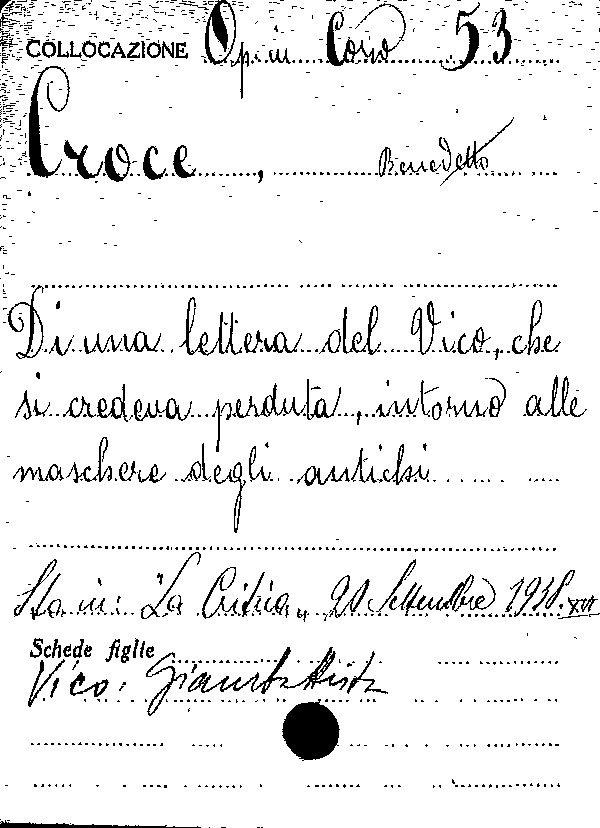 COLLOCAZIONE Op. in Corso 53
Croce, Benedetto
Di una lettera del Vico, che
si credeva perduta, intorno alle
maschere degli antichi
Sta in: "La Critica" 20 Settembre 1938. XVI
Schede figlie
Vico, Giambattista